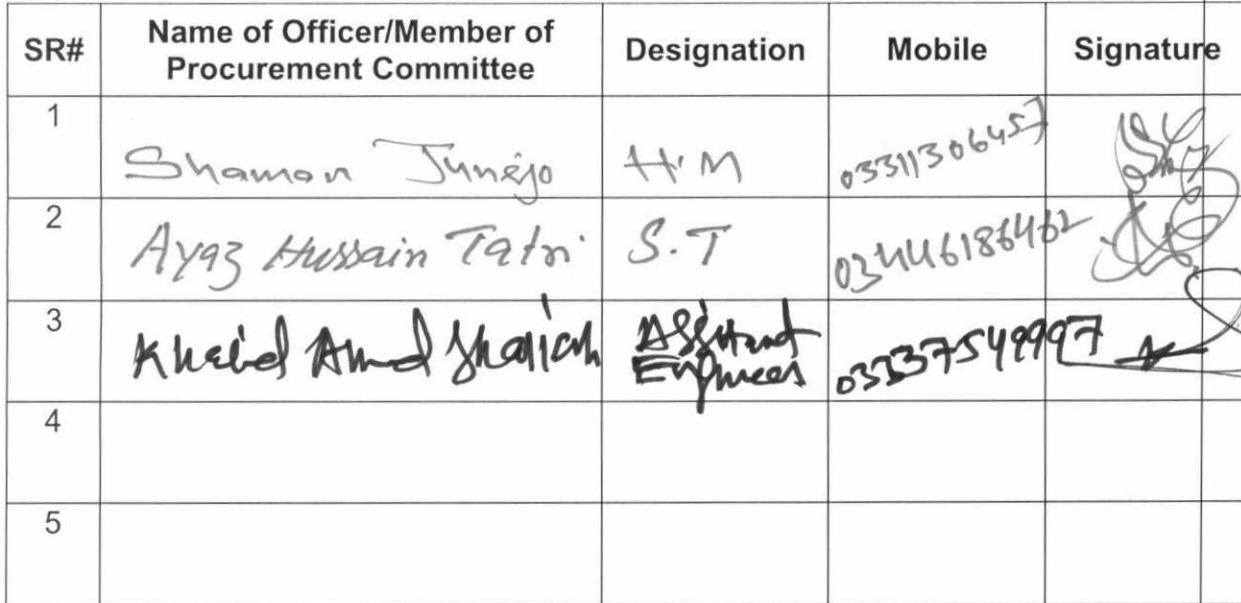 SR# Name of Officer/Member of Procurement Committee Designation Mobile Signature
1 Shaman Junejo H.M 03311306457
2 Ayaz Hussain Tatri S.T 03446186462
3 Khalid Ahmed Assistant Engineer 03337549997
4
5